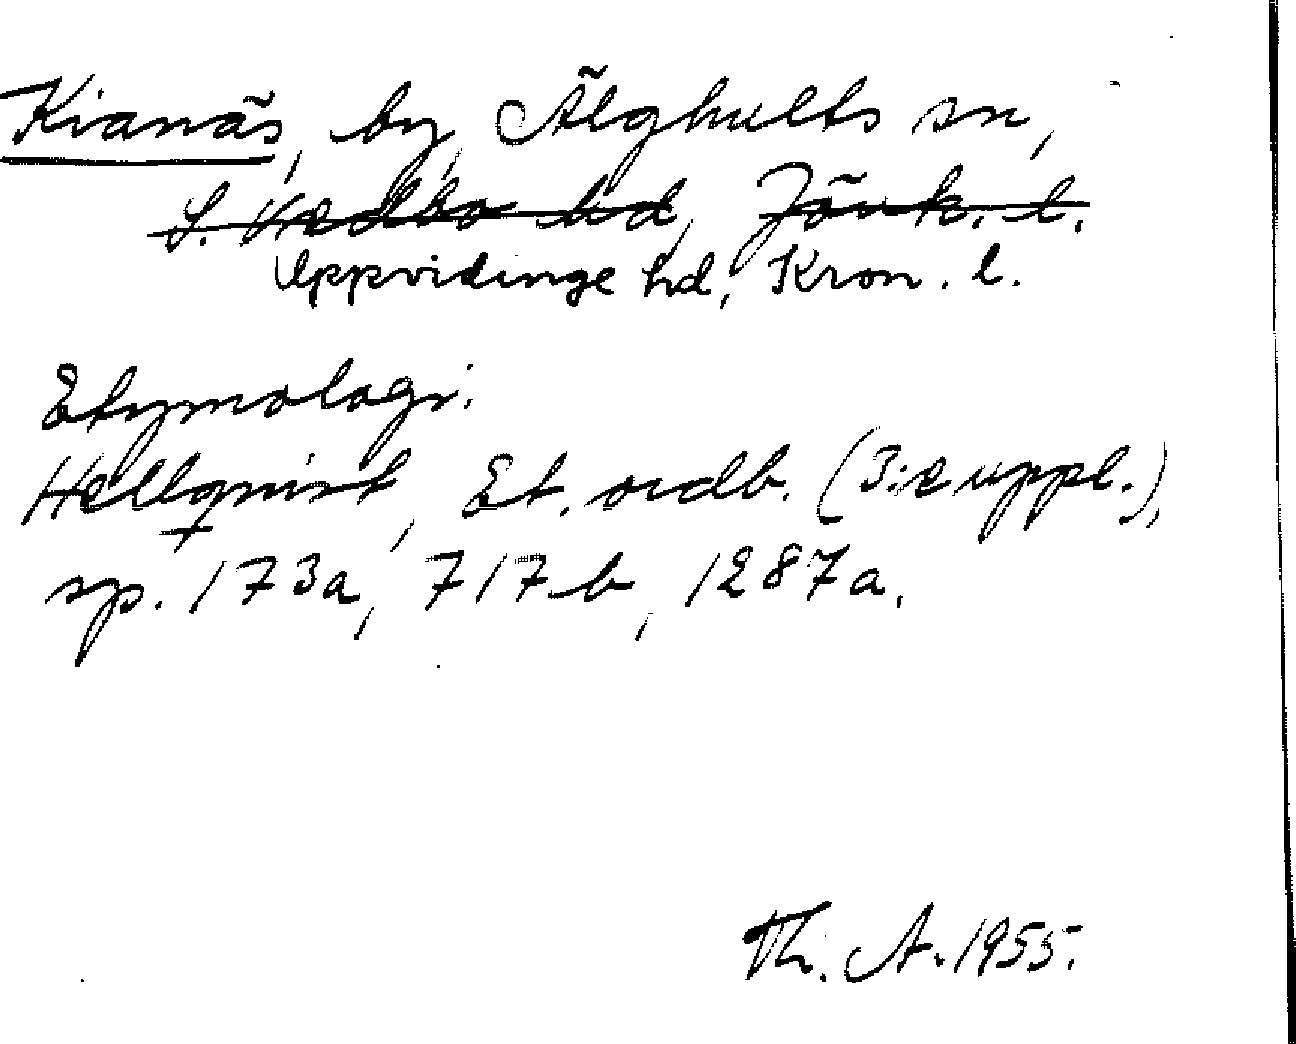 Kianäs, by, Älghults sn,
S. Vedbo hd, Jönk. l.
Uppvidinge hd, Kron. l.
Etymologi:
Hellquist, Et. ordb. (3:e uppl.),
sp. 173a, 717b, 1287a.
Th. A. 1955.